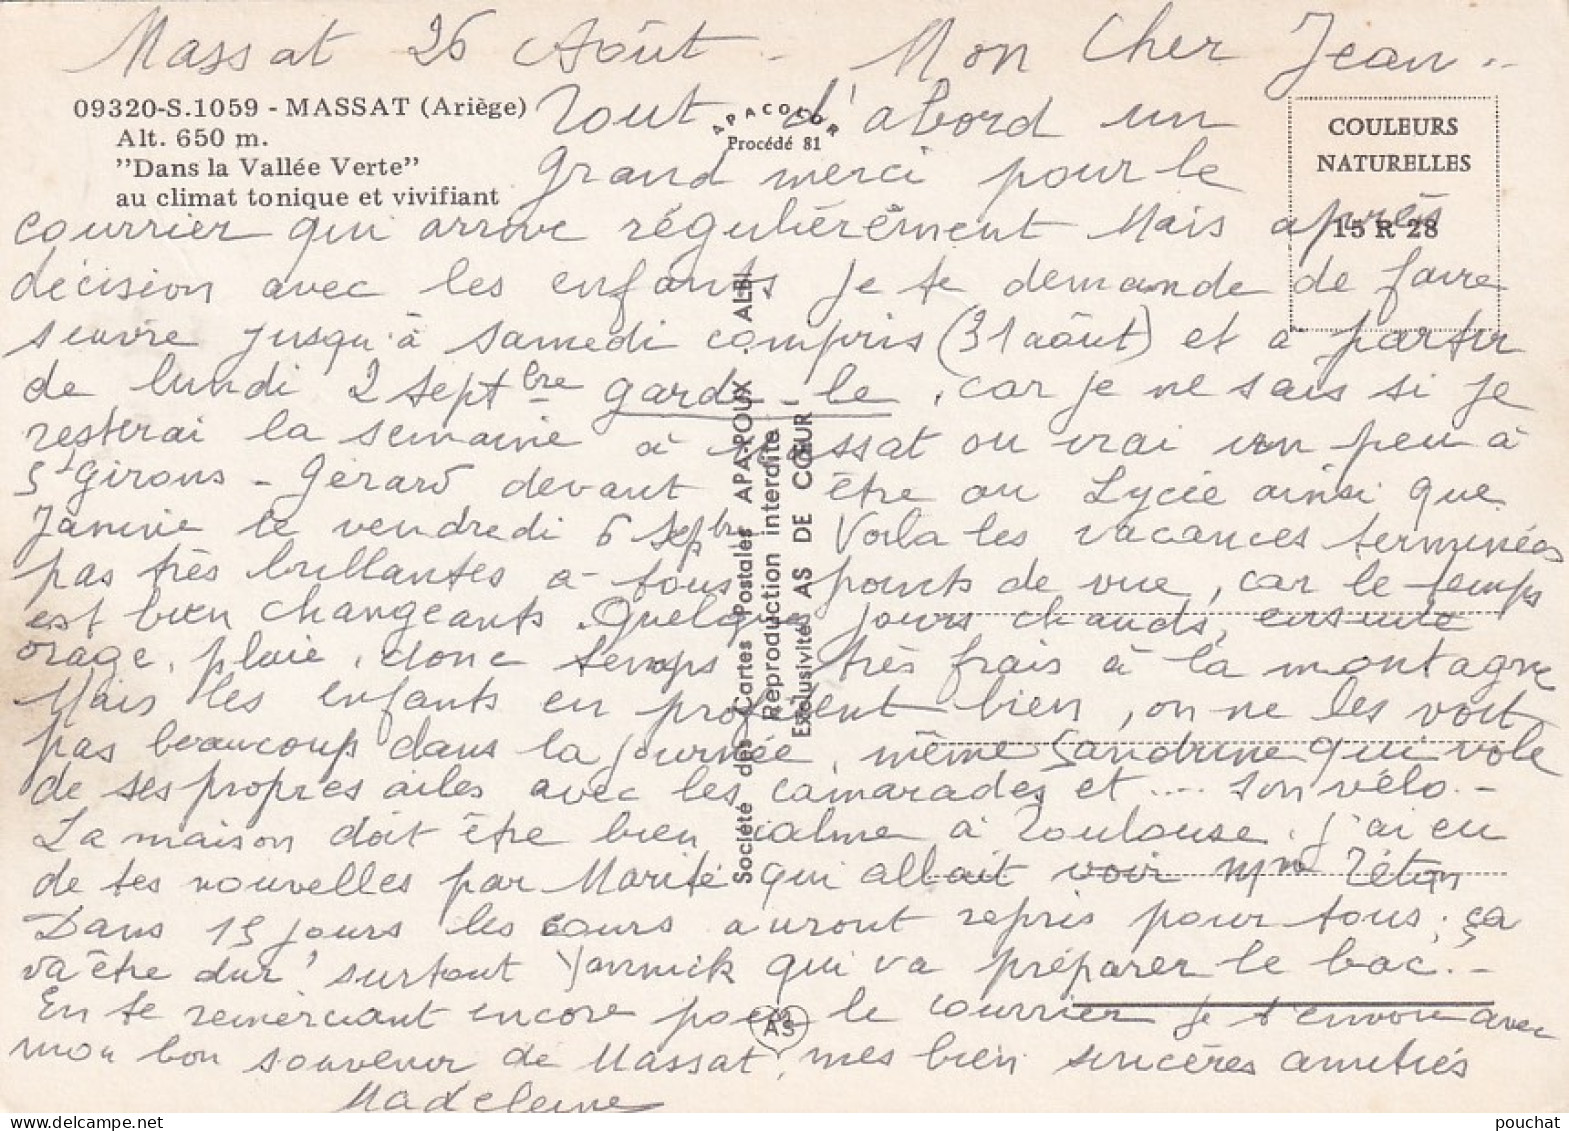 Massat 26 Août - Mon Cher Jean..
09320-S.1059 - MASSAT (Ariège)
Alt. 650 m.
"Dans la Vallée Verte"
au climat tonique et vivifiant
APACOLOR
Procédé 81
COULEURS
NATURELLES
15 R 28
Tout d'abord un
grand merci pour le
courrier qui arrive régulièrement Mais après
décision avec les enfants je te demande de faire
suivre jusqu'à samedi compris (31 août) et à partir
de lundi 2 Septbre garde-le, car je ne sais si je
resterai la semaine à Massat ou vrai un peu à
St Girons - Gérard devant être au Lycée ainsi que
Janine le vendredi 6 Septbre Voila les vacances terminées
pas très brillantes à tous points de vue, car le temps
est bien changeants. Quelques jours chauds, ensuite
orage, pluie, donc temps très frais à la montagne
Mais les enfants en profitent bien, on ne les voit
pas beaucoup dans la journée, même Sandrine qui vole
de ses propres ailes avec les camarades et .... son vélo.-
La maison doit être bien calme à Toulouse. J'ai eu
de tes nouvelles par Marité qui allait voir Mme Téton
Dans 15 jours les cours auront repris pour tous; ça
va être dur, surtout Yannick qui va préparer le bac.-
En te remerciant encore pour le courrier je t'envoie avec
mon bon souvenir de Massat, mes bien sincères amitiés
Madeleine
Société des Cartes Postales APA-POUX - ALBI
Reproduction interdite
Exclusivité AS DE CŒUR
AS
pouchat